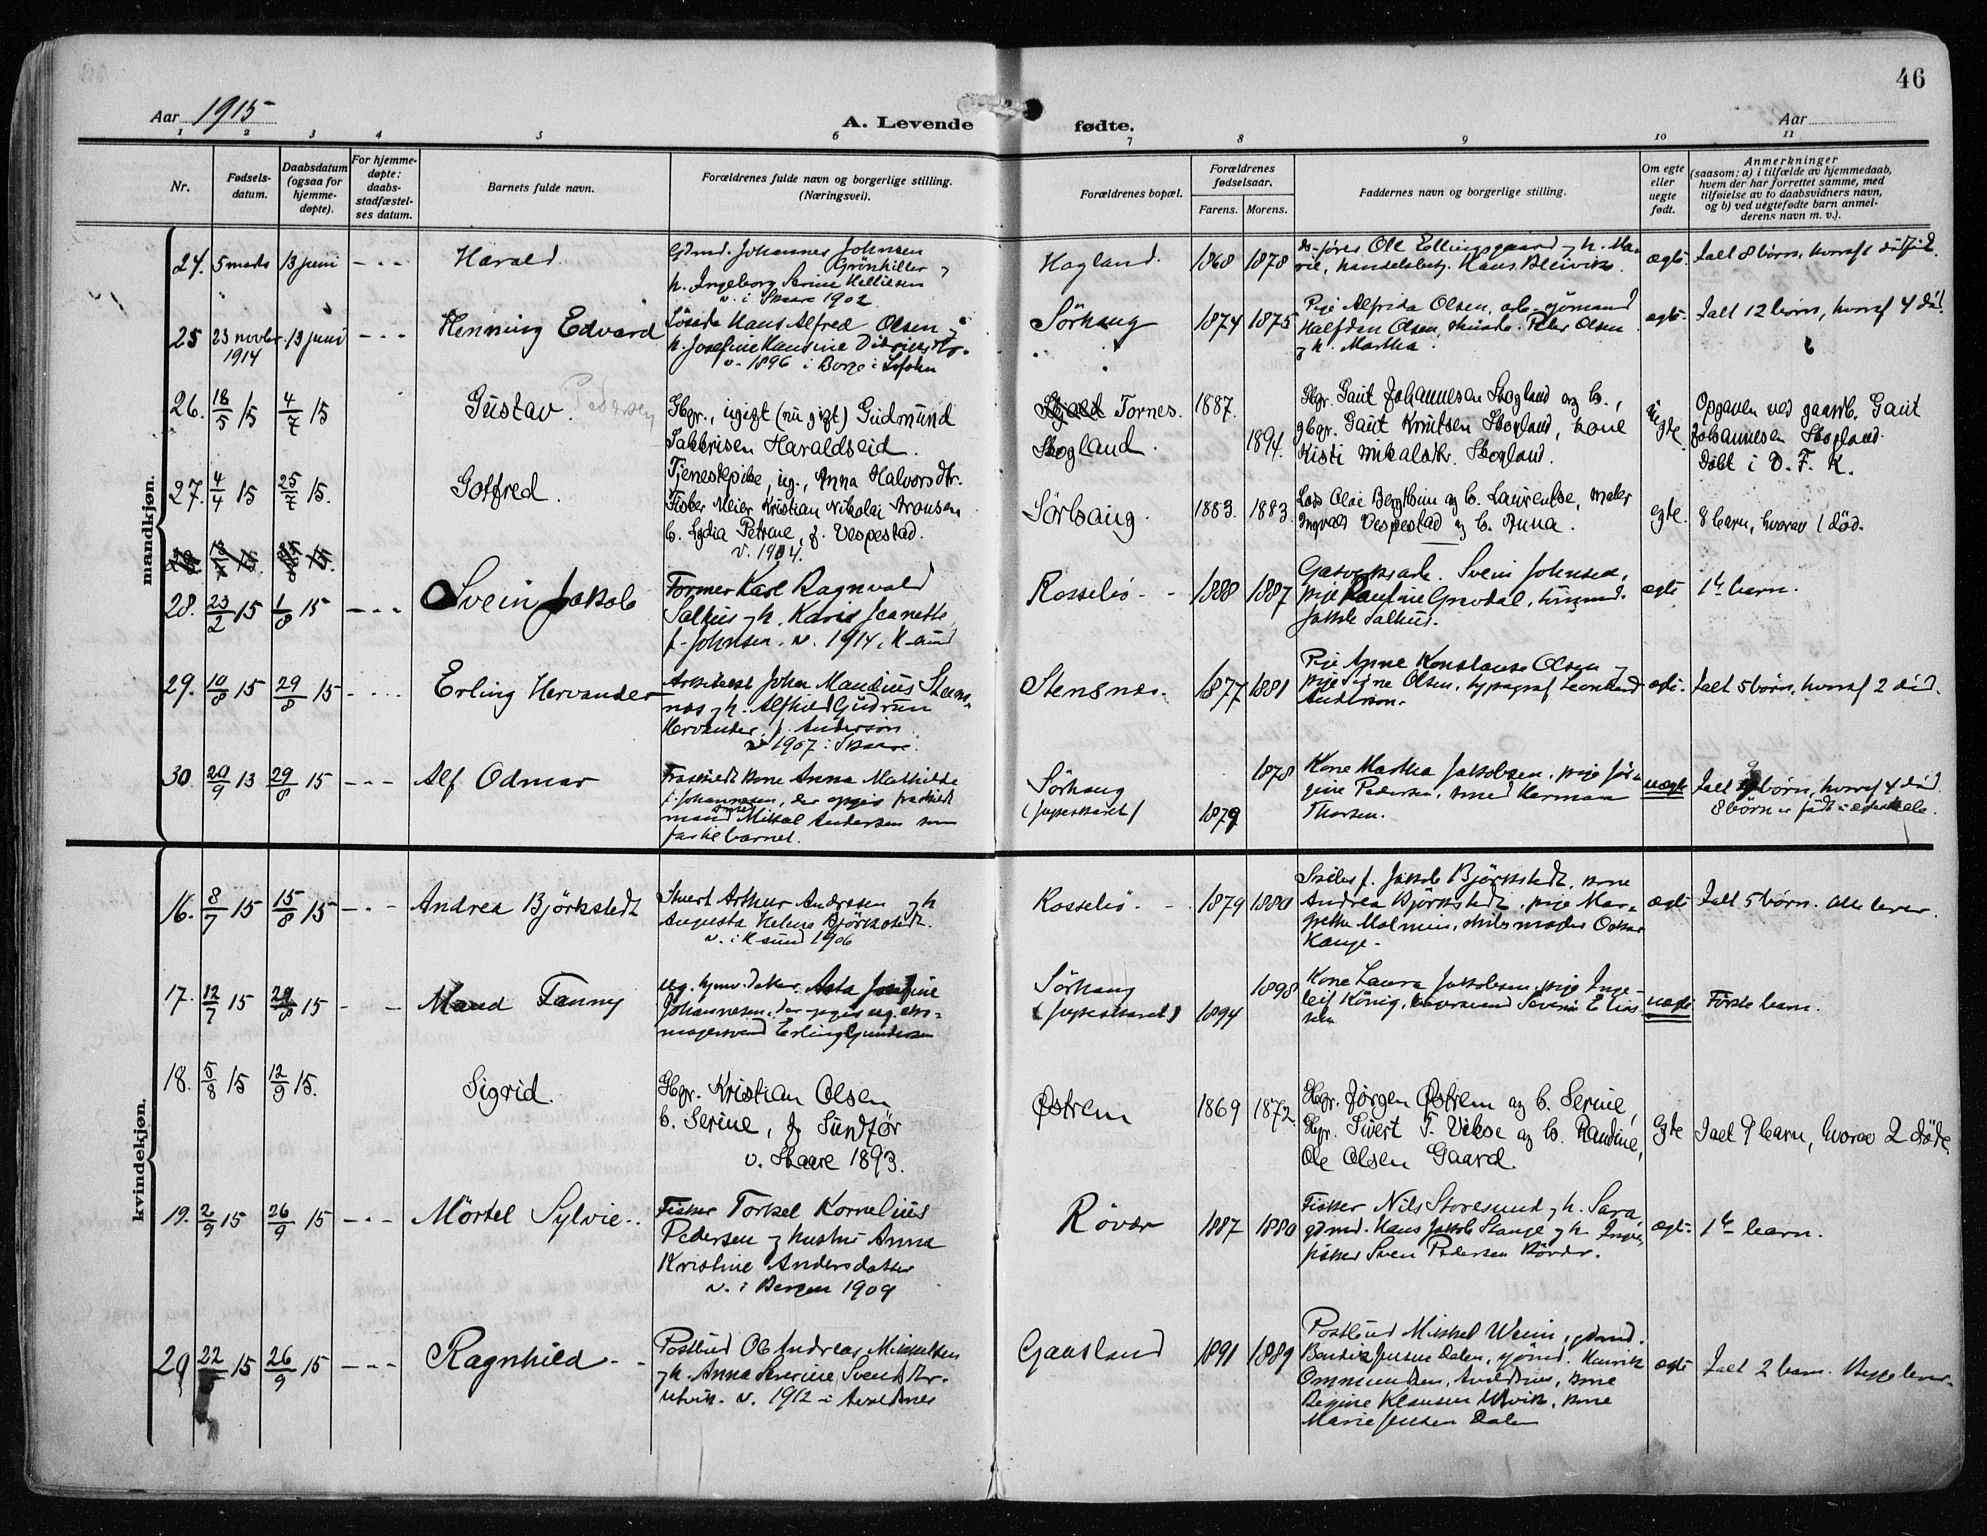 46
Aar 1915
A. Levende fødte.
Aar
1 2 3 4 5 6 7 8 9 10 11
Nr.
Fødsels-
datum.
Daabsdatum
(ogsaa for
hjemme-
døpte).
For hjemme-
døpte:
daabs-
stadfæstel-
ses datum.
Barnets fulde navn.
Forældrenes fulde navn og borgerlige stilling.
(Næringsvei).
Forældrenes bopæl.
Forældrenes
fødselsaar.
Farens. Morens.
Faddernes navn og borgerlige stilling.
Om egte
eller
uegte
født.
Anmerkninger
(saasom: a) i tilfælde av hjemmedaab,
hvem der har forrettet samme, med
tilføielse av to daabsvidners navn,
og b) ved uegtefødte barn anmel-
derens navn m. v.).
mandkjøn.
24. 5 marts 13 juni - - - Harald.
Gdmd. Johannes Johnsen
h. Ingeborg Serine
v. i Skaare 1902
Hagland. 1868 1878
Ole Ellingsgaard og h. Ma-
handelsbetj. Hans Bleivik
ægte. Ialt 8 børn, hvoraf 1 dødfød.
25 23 novbr 13 juni - - - Henning Edvard
1914
Hans Alfred Olsen
h. Josefine Hansine
v. 1896 i Borge i Lofoten
Sörhaug 1874 1875
Pige Alfrida Olsen,
Halfdan Olsen, Peter Olsen
og h. Martha.
ægte. Ialt 12 børn, hvoraf 4 død.
26. 18/5 15 4/7 15 Gustav. Pedersen
Gbgr., ugigt (nu gigt) Gudmund
Haraldseid.
Tjenestepike, ug., Anna Halvorsdtr.
Tornes. 1887.
Skogland. 1894.
Gbgr. Gaut Johannesen Skogland og h.,
gbgr. Gaut Knutsen Skogland, kone
Kisti Mikalsdtr. Skogland.
uegte.
Opgaven ved gaardb. Gaut
Johannesen Skogland.
Døbt i D. F. K.
27. 4/4 15 25/7 15. Gotfred.
Fisker Meier Kristian Nikolai Aronsen
h. Lydia Petrine, f. Vespestad.
v. 1904.
Sörhaug. 1883. 1883.
Olai og h. Laurentse, maler
Ingvald Vespestad og h. Anna.
egte. 8 barn, hvorav 1 død.
28. 23/2 15 1/8 15 - - - Svein Jakob
Former Karl Ragnvald
Salhus og h. Karie Jeanette
f. Johnsen. v. 1914. K-sund
Rosselio - - 1888 1887
Gasverksarb. Svein Johnsen,
pige
Jakob Salhus.
ægte 1te barn.
29. 10/8 15 29/8 15 - - - Erling Hervander
Arbeider Johan Mandius Stens-
næs og h. Alfhild Gudrun
Hervander f. Anderson
v 1907 i Skaare.
Stensnæs. 1877 1881
Pige Anne Konstanse Olsen og
pige Signe Olsen, typograf
Anderson.
ægte. Ialt 5 børn, hvoraf 2 død.
30 20/9 13 29/8 15 - - - Alf Odmar
Fraskilt kone Anna Mathilde
f. Johannesen, der opgir fraskilt
mand Mikal Andersen som
far til barnet.
Sörhaug 1878
1879
Kone Martha Jakobsen, pige Jør-
gine Pedersen, smed Herman
Thorsen.
uægte Ialt 9 børn, hvoraf 4 død.
8 børn er født i ægteskab.
kvindekjøn.
16. 8/7 15 15/8 15 - - - Andrea Björkstedt
Stuert Arthur Andresen og h
Augusta Helene Björkstedt.
v. i K sund 1906
Rosselio - - 1879 1880
Jakob Björkstedt, kone
Andrea Björkstedt, pige Mar-
grethe Malmin, Oskar
Kange.
ægte Ialt 5 børn. Alle lever.
17. 12/7 15 29/8 15 - - Maud Fanny
ug. Asta Josefine
Johannesen, der opgir ug.
Erling Gundersen
Sörhaug 1898
1894
Kone Laura Jakobsen, pige Inge-
leif König, Severin Elias-
sen
uægte Förste barn.
18. 5/8 15 12/9 15. Sigrid.
Gbgr. Kristian Olsen
h. Serine, f. Sundför
v. Skaare 1893.
Østrem 1869 1872.
Gbgr. Jørgen Østrem og h. Serine,
Gbgr. Sivert T. Vikse og h. Randine,
Ole Olsen Gaard.
Egte Ialt 9 barn, hvorav 2 døde.
19. 2/9 15 26/9 15 - - - Mörtel Sylvie -
Fisker Torkel Kornelius
Pedersen og hustru Anna
Kristine Andersdatter
v. i Bergen 1909
Rövær 1887 1880
Fisker Nils Storesund og h. Sara,
gdmd. Hans Jakob Stange og h Inger,
fisker Sven Pedersen Rövær.
ægte. 1te barn.
20 22/ 15 26/9 15 - - - Ragnhild - -
Postbud Ole Andreas Mikkelsen
og h. Anna Severine
Utvik. v. 1912 i Avaldsnes
Gaasland 1891 1889
Postbud Mikkel gdmd.
Bendix Jensen Dalen, Henrik
Ommundsen, Avaldsnes, kone
Regine Klausen Utvik, kone
Marie Jensen Dalen
ægte Ialt 2 barn. Begge lever.